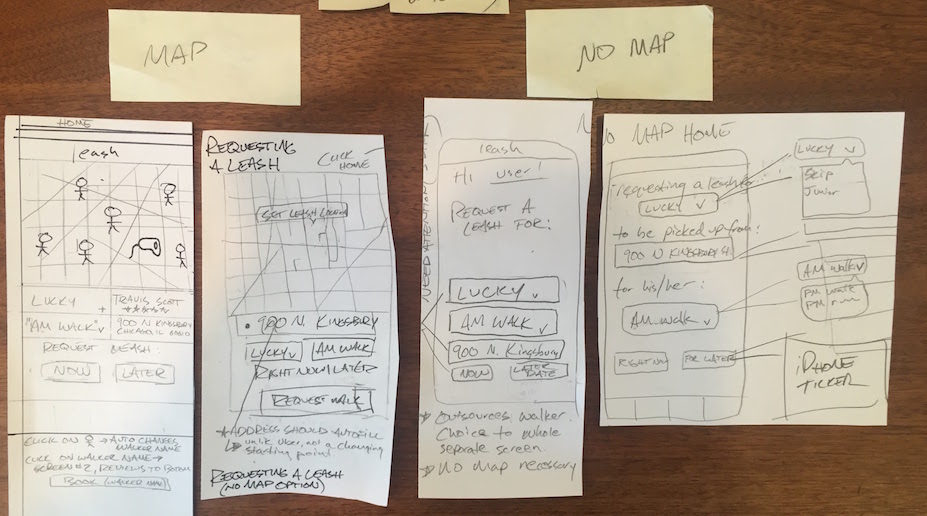 MAP
NO MAP
HOME
leash
LUCKY
TRAVIS SCOTT
"AM WALK" v
900 N KINGSBURY
CHICAGO, IL 60610
REQUEST LEASH:
NOW
LATER
CLICK ON → AUTO CHANGES
WALKER NAME
CLICK ON WALKER NAME →
SCREEN #2, RETURNS TO BOTTOM
BOOK (WALKER NAME)
REQUESTING
A LEASH
CLICK
HOME
SET LEASH LOCATION
900 N. KINGSBURY
LUCKY v
AM WALK
RIGHT NOW/LATER
REQUEST WALK
* ADDRESS SHOULD AUTOFILL
↳ unlike Uber, not a changing
starting point
REQUESTING A LEASH
(NO MAP OPTION)
leash
Hi user!
REQUEST A
LEASH FOR:
LUCKY v
AM WALK v
900 N. Kingsbury
NOW
LATER
DATE
→ OUTSOURCES WALKER
CHOICE TO WHOLE
separate screen.
→ NO MAP necessary
NO MAP HOME
requesting a leash for:
LUCKY v
to be picked up from:
900 N KINGSBURY St.
for his/her:
AM walk v
RIGHT NOW
FOR LATER
LUCKY v
Skip
Junior
AM WALK v
PM WALK
PM run
iPHONE
TICKER